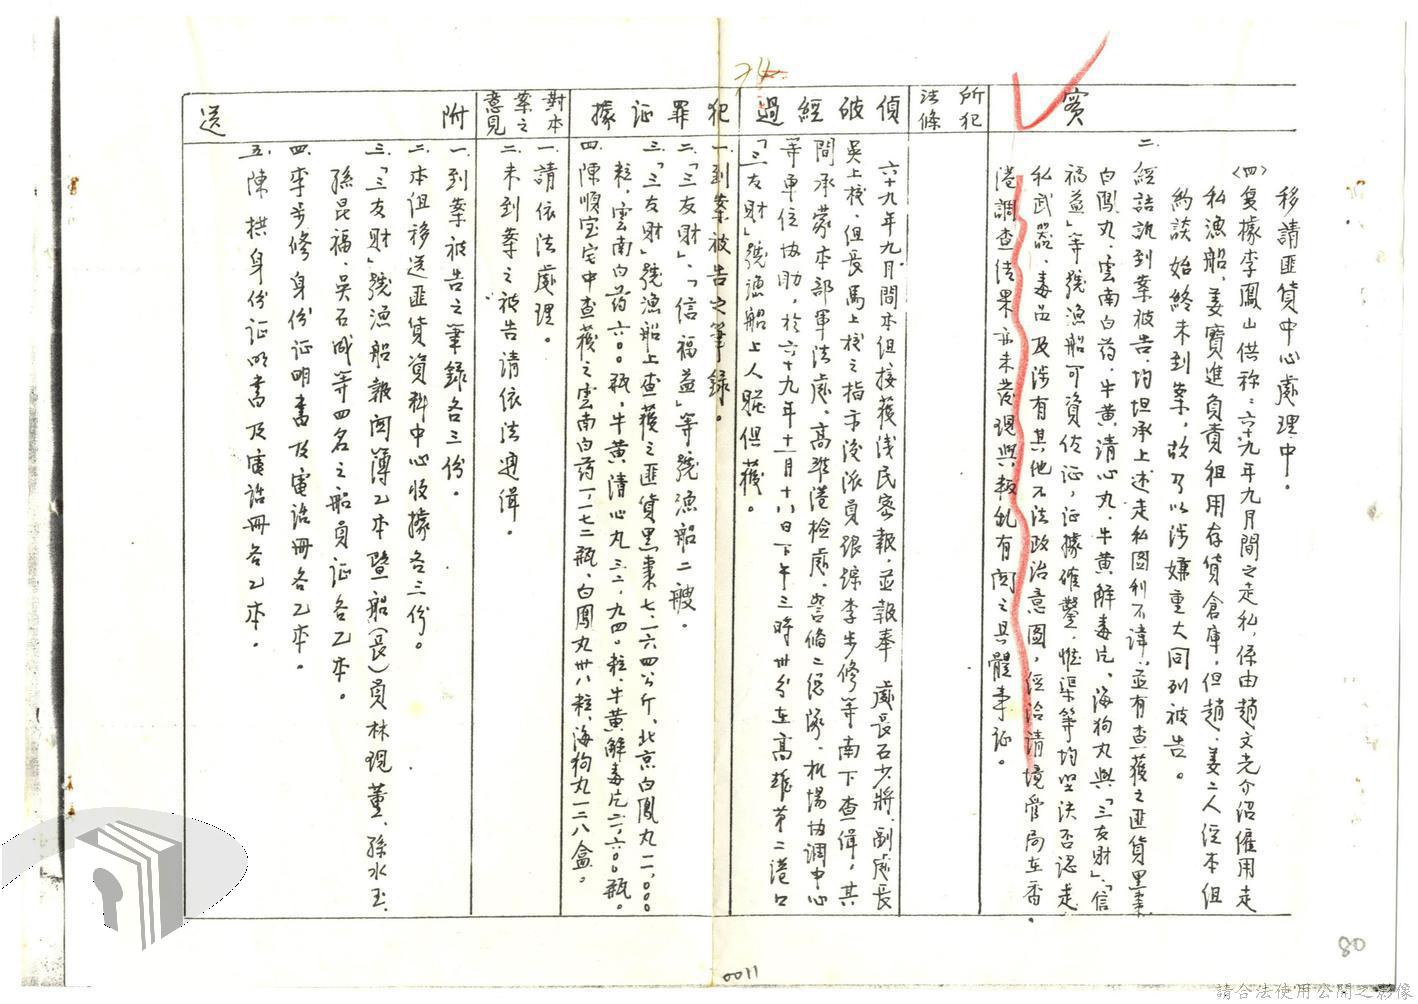 實
移請匪貨中心處理中。
(四)復據李鳳山供称：六十九年九月間之走私，係由趙文光介紹僱用走
私漁船，姜寶進負責租用存貨倉庫，但趙、姜二人經本組
約談始終未到案，故乃以涉嫌重大同列被告。
二、經詰訊到案被告，均坦承上述走私圖利不諱，並有查獲之匪貨黑棗
白鳳丸、雲南白药、牛黃清心丸、牛黃解毒片、海狗丸與「三友財」、「信
福益」等號漁船可資佐証，証據確鑿，惟渠等均堅決否認走
私武器、毒品及涉有其他不法政治意圖，經洽請境管局在香、
港調查結果亦未發現與叛乱有関之具體事証。
所犯
法條
偵破經過
六十九年九月間本組接獲線民密報，並報奉 處長石少將、副處長
吳上校、組長馬上校之指示後派員跟踪李步修等南下查緝，其
間承蒙本部軍法處、高雄港檢處、警備二總隊、机場協調中心
等單位協助，於六十九年十一月十八日下午三時卅分在高雄第二港口
「三友財」號漁船上人賍俱獲。
犯罪証據
一、到案被告之筆錄。
二、「三友財」、「信福益」等號漁船二艘。
三、「三友財」號漁船上查獲之匪貨黑棗七、一六四公斤、北京白鳳丸二一、〇〇〇
粒、雲南白药六〇〇瓶、牛黃清心丸三二、九四〇粒、牛黃解毒片二一、六〇〇瓶。
四、陳順宝宅中查獲之雲南白药一、一七二瓶、白鳳丸卅八粒、海狗丸一二八盒。
對本
案之
意見
一、請依法處理。
二、未到案之被告請依法通緝。
附送
一、到案被告之筆錄各三份。
二、本組移送匪貨資料中心收據各三份。
三、「三友財」號漁船報関簿乙本暨船(長)員林現董、孫水玉、
孫昆福、吳石成等四名之船員証各乙本。
四、李步修身份証明書及電話冊各乙本。
五、陳拱身份証明書及電話冊各乙本。
0011
80
請合法使用公開之影像